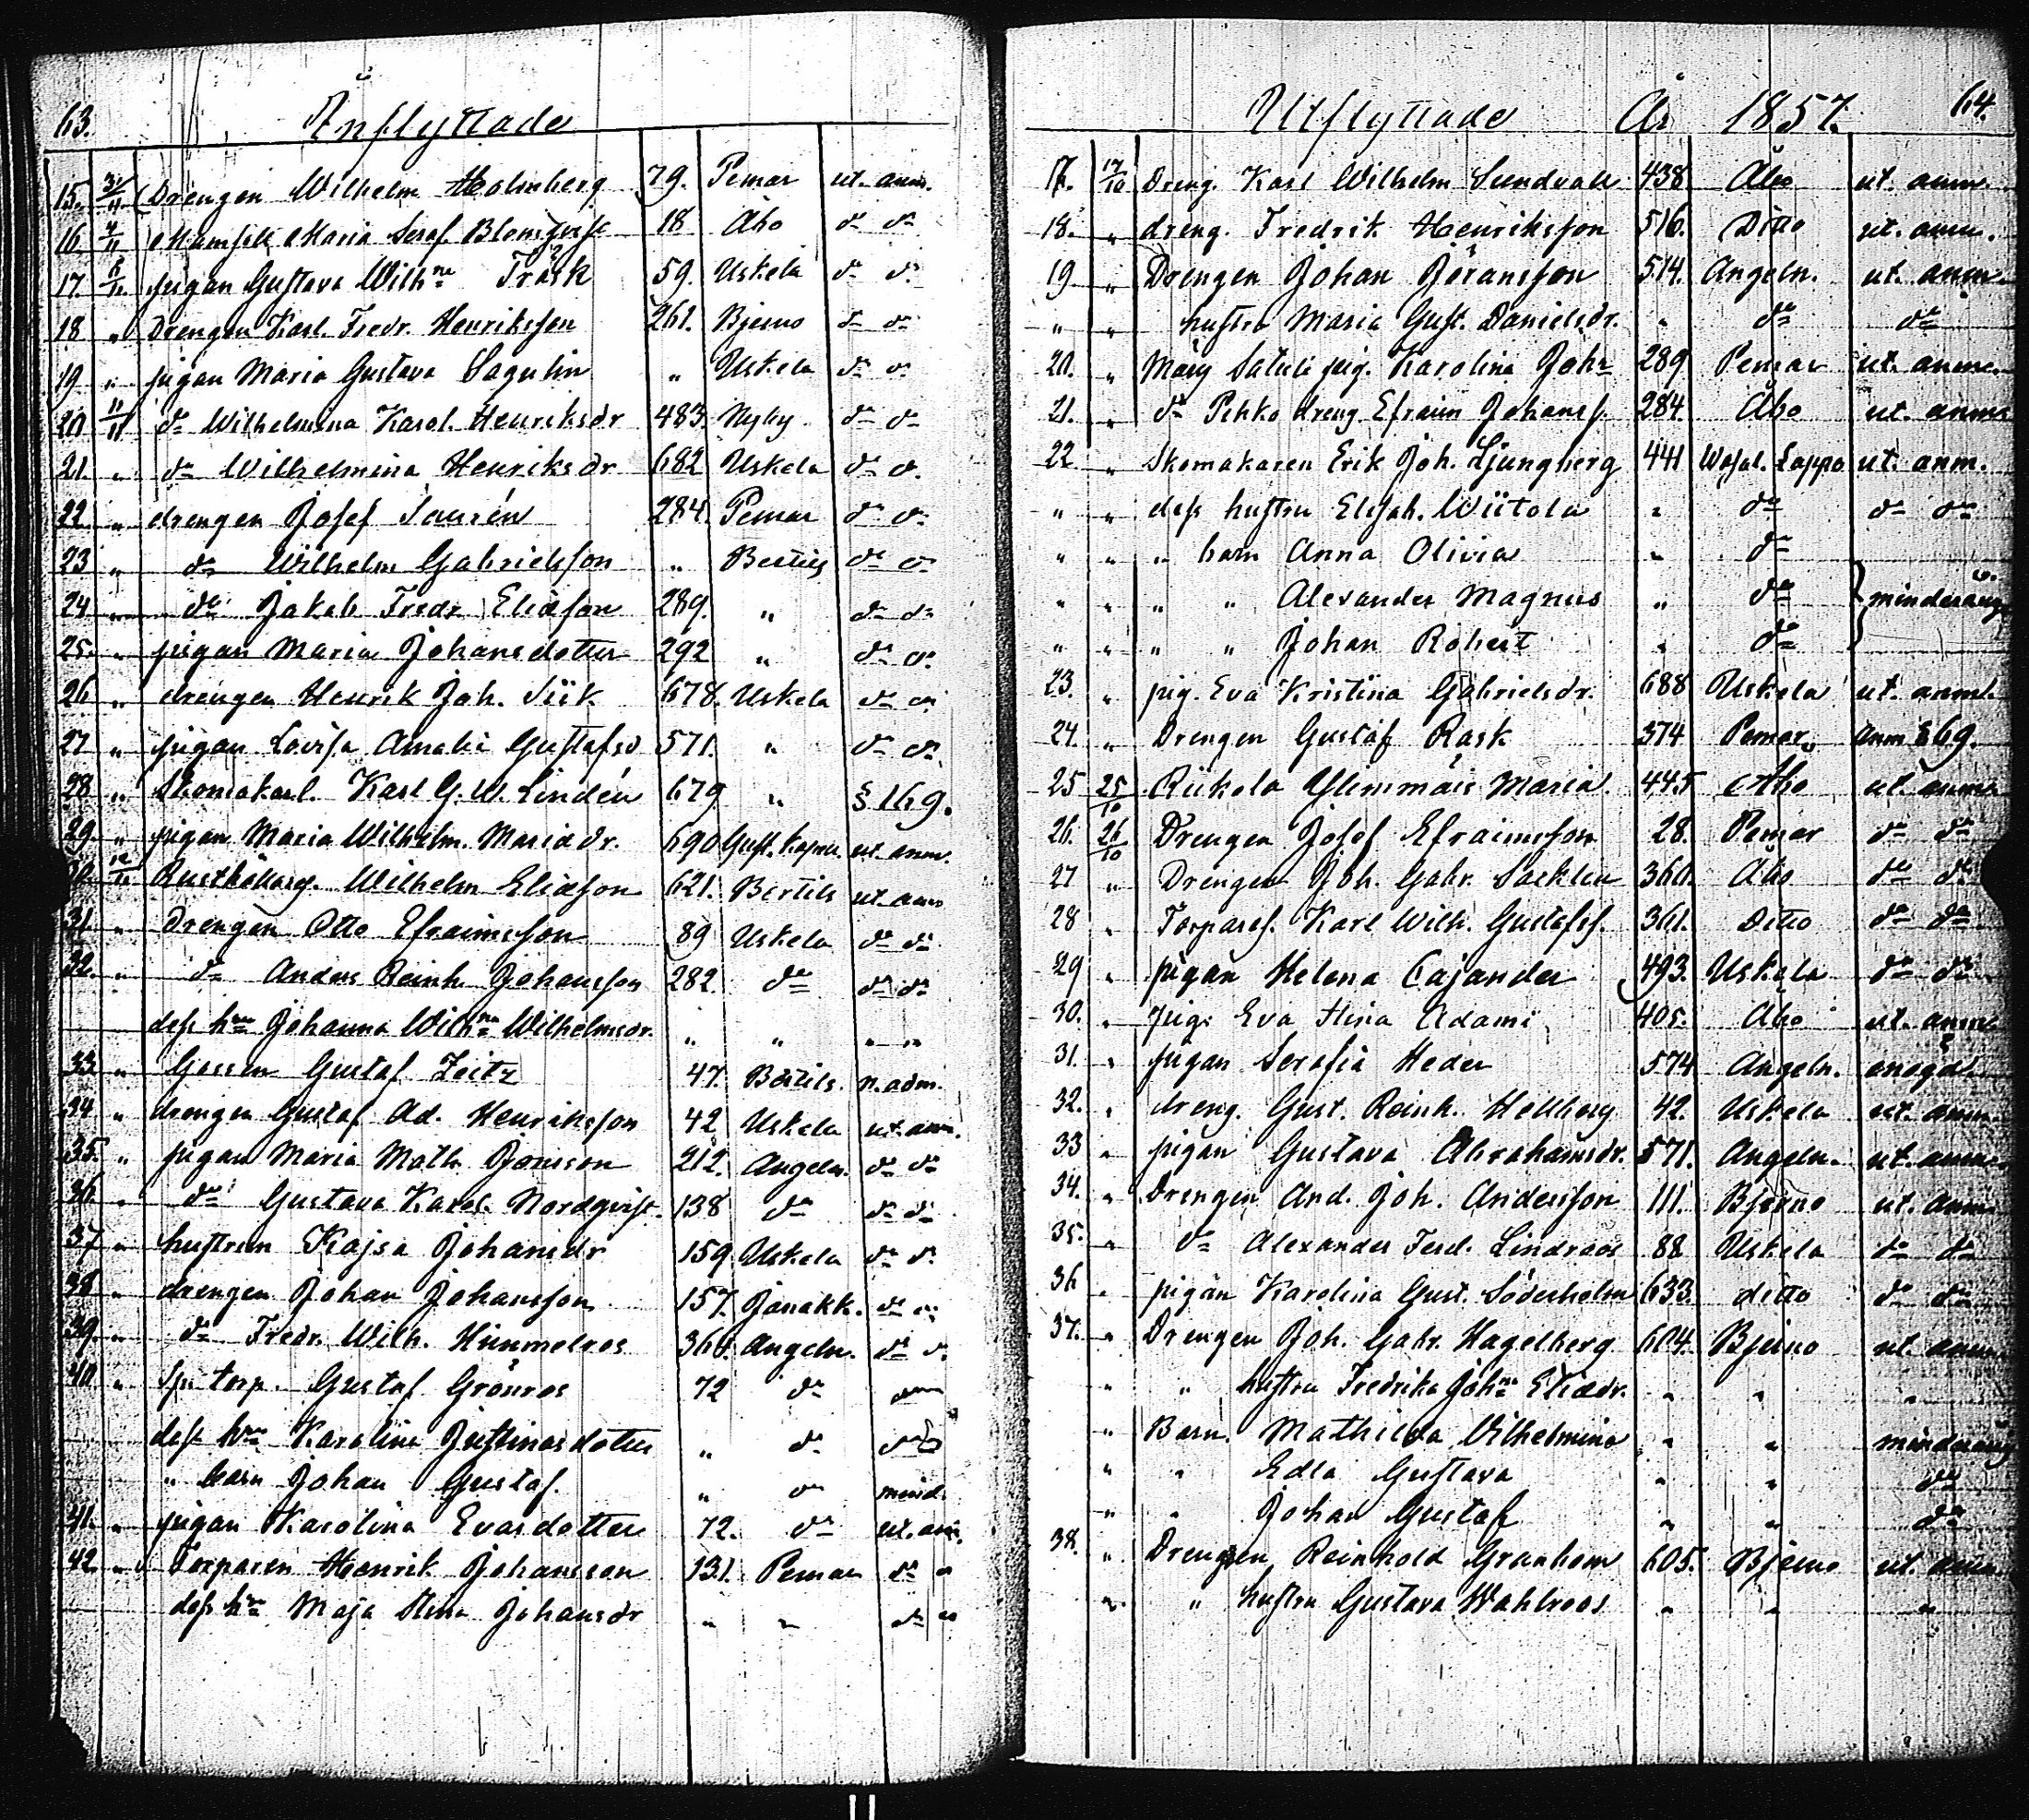 63. Inflyttade
15. 3/11 Drengen Wilhelm Holmberg 79. Pemar ut. anm.
16 4/11 Mamsell Maria Seraf. Blomqvist 18 Åbo do do
17. pigan Gustava Wilhna Träsk 59. Uskela do do
18 " Drengen Karl Fredr. Henriksson 261. Bjerno do do
19 " pigan Maria Gustava Sagulin " Uskela do do
20 11/11 do Wilhelmina Karol. Henriksdr 483. Nyby do do
21. " do Wilhelmina Henriksdr 682 Uskela do do
22 " drengen Josef Saurén 284. Pemar do do
23 " do Wilhelm Gabrielsson " Bertils do do
24 " do Jakob Fredr. Eliasson 289. " do do
25. " pigan Maria Johansdotter 292 " do do
26 " drengen Henrik Joh. Siik 678. Uskela do do
27 " pigan Lovisa Amalia Gustafsd 571. " do do
28 " Skomakarl. Karl G. W. Lindén 679 " § 169.
29. " pigan Maria Wilhelm. Mariadr. 690 Gust. ut. anm.
30. Rusthållarg. Wilhelm Eliasson 621. Bertils ut anm
31. " Drengen Otto Efraimsson 89 Uskela do do
32. " do Anders Reinh Johansson 282. do do do
dess hru Johanna Wilhna Wilhelmsdr. " " " "
33 " Gossen Gustaf Zeitz 47. Bertils. n. adm.
34 " drengen Gustaf Ad. Henriksson 42 Uskela ut. anm.
35. " pigan Maria Math. Jonsson 212. Angeln. do do
36 " do Gustava Karol. Nordqvist. 138 do do do
37 " hustrun Kajsa Johansdr 159. Uskela do do
38 " drengen Johan Johansson 157. Janakk. do do
39. " do Fredr. Wilh. Himmelros 360. Angeln. do do
40. " Sp. torp. Gustaf Grönros 72 do do
dess hru Karolina Justinasdotter " do do
" barn Johan Gustaf. " do mind.
41. " pigan Karolina Evasdotter 72. do ut. anm.
42 " Torparen Henrik Johansson 131. Pemar do "
dess hru Maja Stina Johansdr " " do "
Utflyttade År 1857. 64.
17. 17/10 Dreng. Karl Wilhelm Sundvall 438 Åbo ut. anm.
18. " dreng. Fredrik Henriksson 516. Ditto ut. anm.
19 " Drengen Johan Göransson 514. Angeln. ut. anm.
" " hustru Maria Gust. Danielsdr. " do do
20. " Märy Satuli pig. Karolina Johna 289 Pemar ut. anm.
21. " do Pehko dreng Efraim Johanss. 284. Åbo ut. anm
22 " Skomakaren Erik Joh. Ljungberg 441 Wasal. Lappo ut. anm.
" " dess hustru Elisab. Wiitola " do do do
" " " barn Anna Olivia " do
" " " " Alexander Magnus " do minderåriga
" " " " Johan Robert " do
23. " pig. Eva Kristina Gabrielsdr. 688 Uskela ut. anm.
24. " Drengen Gustaf Rask 374 Pemar anm § 69.
25 25/10 Riikola Ylimmäis Maria. 445 Åbo ut. anm.
26. 26/10 Drengen Josef Efraimsson 28. Pemar do do
27 " Drengen Joh. Gabr. Sacklen 360. Åbo do do
28 " Torpares. Karl Wilh. Gustafss. 361. Ditto do do
29 " pigan Helena Cajander 493. Uskela do do
30. " pig. Eva Stina Adami 405. Åbo ut. anm
31. " pigan Serafia Heder 574 Angeln.
32. " dreng. Gust. Reinh. Hellberg 42. Uskela ut. anm.
33 " pigan Gustava Abrahamsdr. 571. Angeln. ut. anm.
34. " Drengen And. Joh. Andersson 111. Bjerno ut. anm
35. " do Alexander Ferd. Lindroos 88 Uskela do do
36 " pigan Karolina Gust. Söderholm 633. ditto do do
37. " Drengen Joh. Gabr. Hagelberg 604. Bjerno ut. anm.
" " hustru Fredrika Johna Eliædr. " " "
" Barn. Mathilda Wilhelmina " " minderårig
" " Edla Gustava " " do
" " Johan Gustaf " " do
38. " Drengen Reinhold Granholm 605. Bjerno ut. anm
" " hustru Gustava Wahlroos " " "